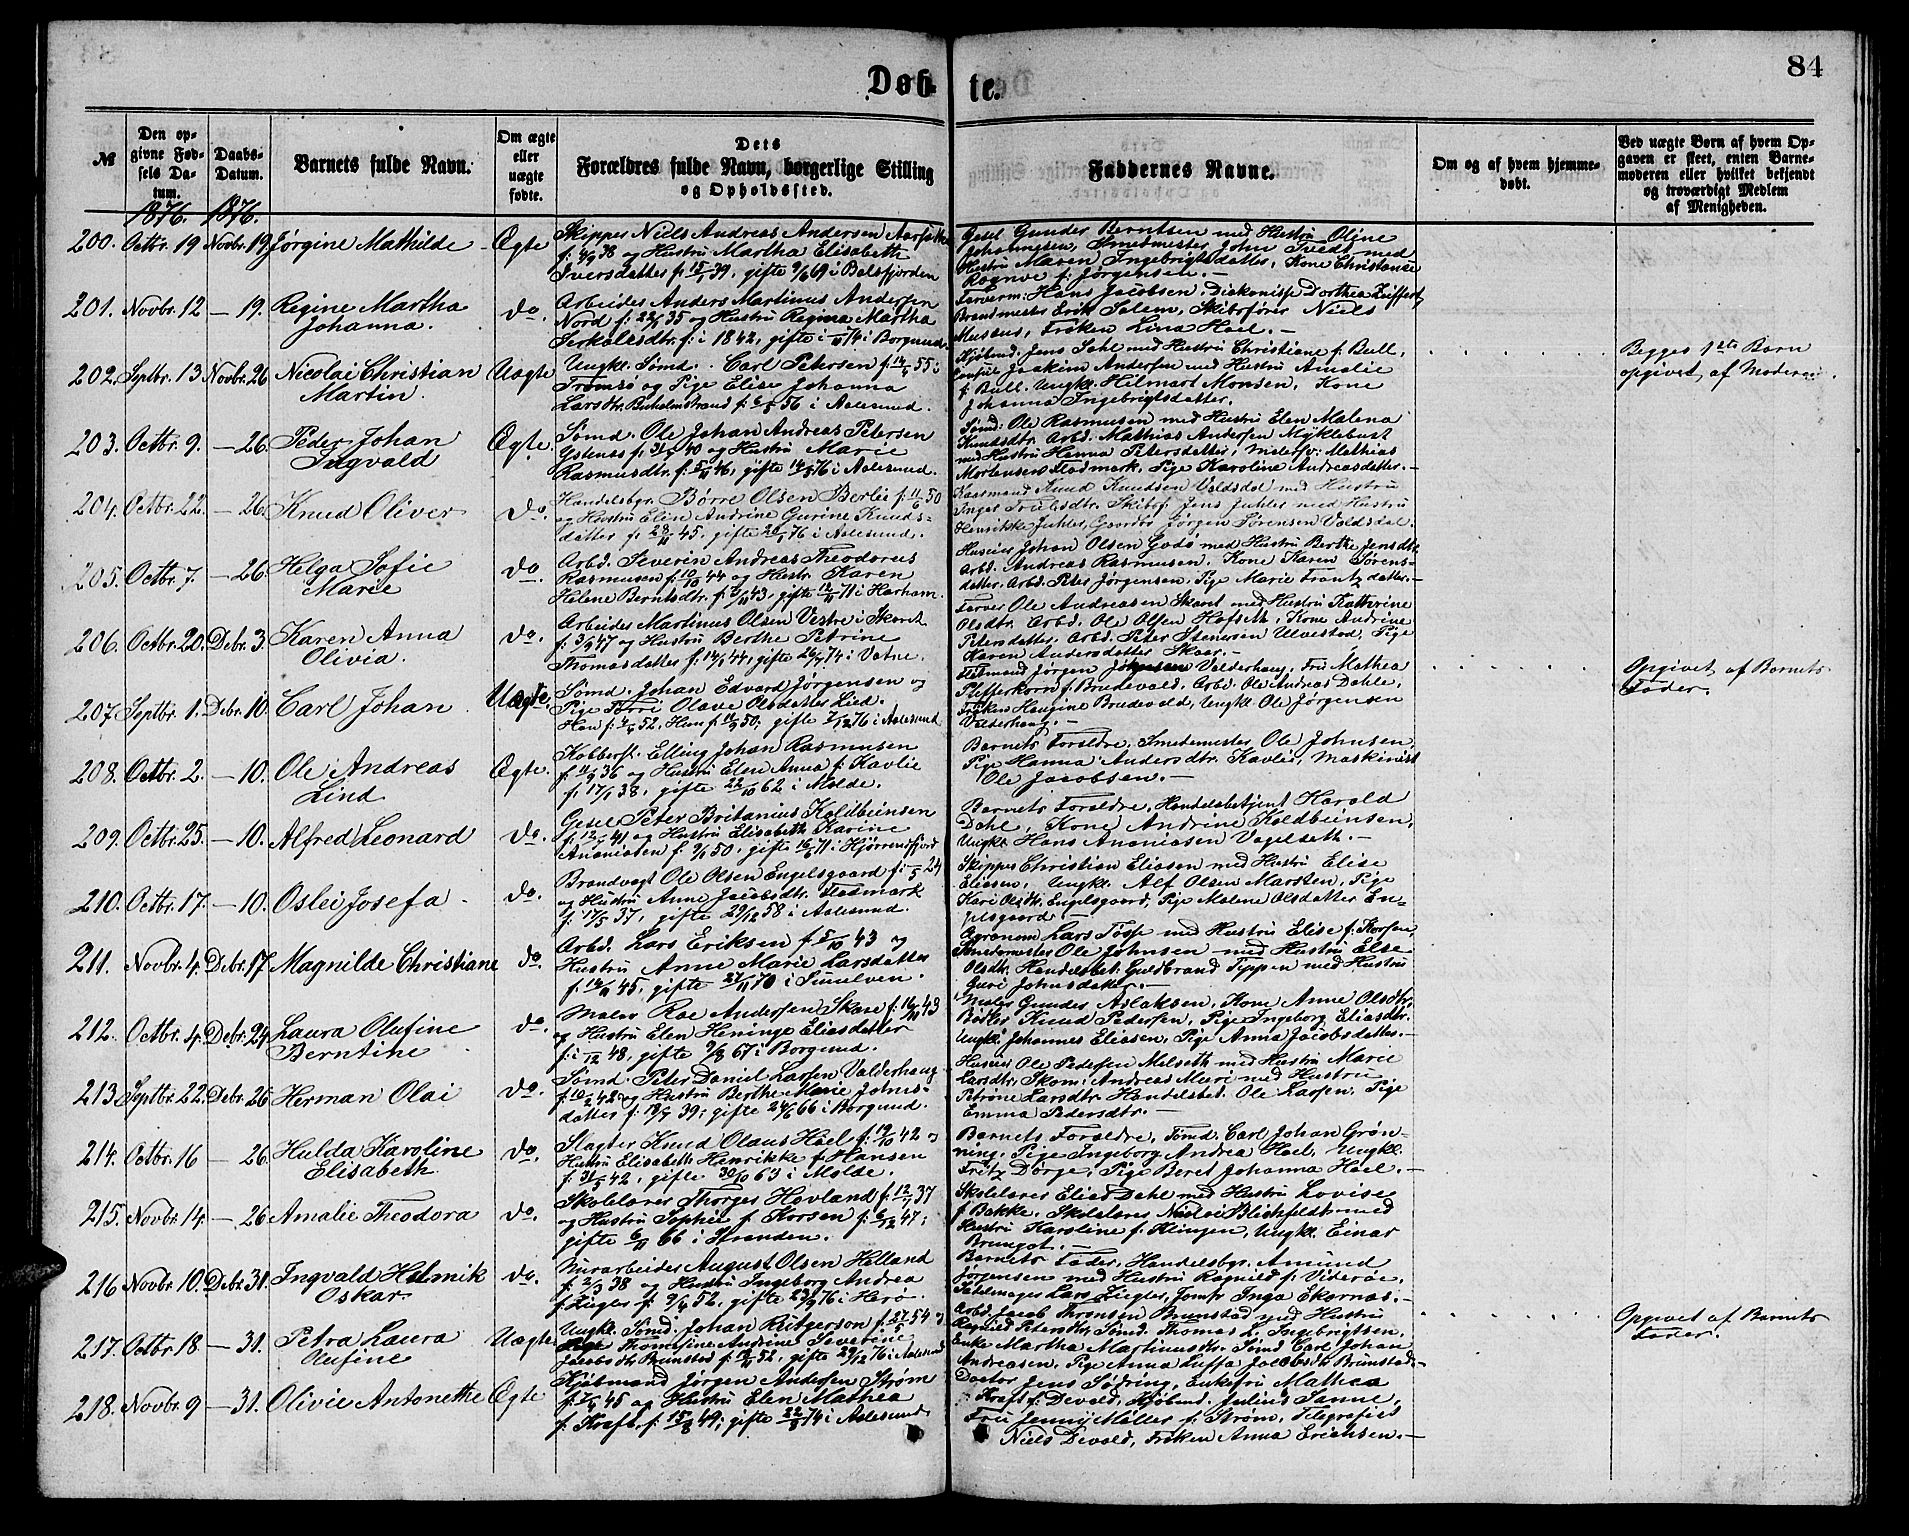 Døbte.
84
№
Den opgivne Fødsels Datum.
Daabs-Datum.
Barnets fulde Navn.
Om ægte eller uægte fødte.
Dets Forældres fulde Navn, borgerlige Stilling og Opholdssted.
Faddernes Navne.
Om og af hvem hjemmedøbt.
Ved uægte Børn af hvem Opgaven er skeet, enten Barnemoderen eller hvilket bekjendt og troværdigt Medlem af Menigheden.
1876. 1876.
200. Octbr. 19 Novbr. 19 Jørgine Mathilde Ægte
Skipper Niels Andreas Andersen
og Hustru Martha Elisabeth
Iversdatter f: 15/2 39, gifte 9/6 69 i Balsfjorden
Gesel Gunder Berntsen med Hustru Oline
Johannesen, Smedmester John Tvedt med
Hustru Maren Ingebrigtsdatter, Kone Christanse
Ragnve f. Jørgensen.
201. Novbr. 12 — 19. Regine Martha Johanna. do.
Arbeider Anders Martinus Andersen
Nord f: 35 og Hustru Regina Martha
Terkelsdtr. f: i 1842, gifte i 74 i Borgund.
Farverm: Hans Jacobsen, Diakonisse Dorthea
Brandmester Erik Salem, Skibsfører Niels
Musæus, Frøken Lina Hoel.
202. Septbr. 13 Novbr. 26 Nicolai Christian Martin. Uægte
Ungkl. Sømd. Carl Petersen f: 55 i
Tromsø og Pige Elise Johanna
Larsdtr. Buholmstrand f: 56 i Aalesund.
Kjøbmd. Jens Dahl med Hustru Christiane f. Bull,
Consul Joakim Andersen med Hustru Amalie
f: Bull, Ungkl. Hilmart Monsen, Kone
Johanna Ingebrigtsdatter.
Begges 1ste Barn
opgivet af Moderen.
203. Octbr. 9. — 26. Peder Johan Ingvald Ægte.
Sømd. Ole Johan Andreas Petersen
Ystenes f: 40 og Hustru Marie
Rasmusdtr. f: 46, gifte 76 i Aalesund.
Sømd: Ole Rasmussen med Hustru Elen Malena
Knudsdtr. Arbd. Mathias Andersen Myklebust
med Hustru Hanna Petersdatter, Mathias
Mortensen Stadmark, Pige Karoline Andreasdatter.
204. Octbr. 22. — 26. Knud Oliver do.
Handelsbgr. Børre Olsen Berlie f: 11/6 50
og Hustru Elen Andrine Gurine Knuds-
datter f: 45, gifte 76 i Aalesund.
Knud Knudsen Valdsdal med Hustru
Jens Juhler med Hustru
Henrikke Juhler, Gaardbr Jørgen Sørensen Valdsdal.
205. Octbr. 7 — 26. Helga Sofie Marie do.
Arbd. Severin Andreas Theodorus
Rasmusen f: 10/10 44 og Hustr. Karen
Helene Berntsdtr. f: 43, gifte 12/11 71 i Harham.
Husmd Johan Olsen Godø med Hustru Berthe Jensdtr.
Arbd. Andreas Rasmusen, Kone Karen Sørens-
datter, Arbd. Peter Jørgensen, Pige Marie Frantzdatter.
206. Octbr. 20. Debr. 3. Karen Anna Olivia. do.
Arbeider Martinus Olsen Vestre i Skaret
f: 3/9 47 og Hustru Berthe Petrine
Thomasdatter f: 14/1 44, gifte 26/7 74 i Vatne.
Farver Ole Andreasen Skaret med Hustru Kathrine
Olsdtr. Arbd. Ole Olsen Hofseth, Kone Andrine
Petersdatter, Arbd. Peter Stenersen Ulvestad, Pige
Karen Andersdatter Skaar.
207. Septbr. 1. Debr. 10. Carl Johan Uægte.
Sømd. Johan Edvard Jørgensen og
Pige Olave Olsdatter Lied.
Han f: 52, Hun f: 50, gifte 7/12 76 i Aalesund
Jørgen Johnsen Valderhaug, Fru Mathea
Pfifferkorn f: Brudevold, Arbd. Ole Andreas Dahle,
Frøken Haugine Brudevold, Ungkl. Ole Jørgensen
Valderhaug.
Opgivet af Barnets
Fader.
208. Octbr. 2. — 10. Ole Andreas Lind Ægte.
Kobbersl. Elling Johan Rasmusen
f: 36 og Hustru Elen Anna f: Kavlie
f: 17/1 38, gifte 22/10 62 i Molde.
Barnets Forældre, Smedemester Ole Johnsen,
Pige Hanna Andersdtr. Kavlie, Maskinist
Ole Jacobsen.
209. Octbr. 25. — 10. Alfred Leonard do.
Gesel Peter Britanius Koldbeinsen
f: 41 og Hustru Elisabeth Karine
f. 9/1 50, gifte 71 i Hjørrendfjord
Barnets Forældre, Handelsbetjent Harald
Dahl, Kone Andrine Koldbeinsen,
Ungkl. Hans Ananiasen Vagelseth.
210. Octbr. 17. — 10. Oslei Josefa do.
Brandvagt Ole Olsen Engelsgaard f: 24
og Hustru Anne Jacobsdtr. Stadmark
f: 17/5 37, gifte 29/12 58 i Aalesund.
Skipper Christian Eliasen med Hustru Elise
Eliasen, Ungkl. Alf Olsen Marsten, Pige
Kari Olsdtr. Engelsgaard, Pige Malene Olsdatter En-
gelsgaard
211. Novbr. 4. Debr. 17. Magnilde Christiane do
Arbd. Lars Eriksen f. 5/10 43 og
Hustru Anne Marie Larsdatter
f: 45, gifte 70 i Sunelven.
Agronom Lars Tosse med Hustru Elise f: Korsen,
Smedemester Ole Johnsen med Hustru Else
Olsdtr. Handelsbet. Guldbrand Tippen med Hustru
Guri Johnsdatter.
212. Octbr. 4. Debr. 24. Laura Olufine Berntine do.
Maler Roe Andersen Skare f. 16/11 43
og Hustru Elen Heninge Eliasdatter
f: 48, gifte 67 i Borgund.
Maler Gunder Aslaksen, Kone Anne Olsdtr.
Bødker Knud Pedersen, Pige Ingeborg Eliasdtr.
Ungkl. Johannes Eliasen, Pige Anna Jacobsdatter.
213. Septbr. 22. Debr. 26 Herman Olai do.
Sømd. Peter Daniel Larsen Valderhaug
f: 42 og Hustru Berthe Marie Johns-
datter f: 39; gifte 24/6 66 i Borgund.
Husmd Ole Pedersen Melseth med Hustru Marie
Larsdtr. Skom: Andreas Muri med Hustru
Petrine Larsdtr. Handelsbet. Ole Larsen, Pige
Emma Pedersdtr.
214. Octbr. 16 — 26. Hulda Karoline Elisabeth do.
Slagter Knud Olaus Hoel f: 19/10 42 og
Hustru Elisabeth Henrikke f. Hansen
f: 31/5 42, gifte 63 i Molde.
Barnets Forældre, Sømd. Carl Johan Grøn-
ning, Pige Ingeborg Andrea Hoel, Ungkl.
Fritz Dørge, Pige Beret Johanna Hoel.
215. Novbr. 14. — 26 Amalie Theodora do.
Skolelærer Thorger Hovland f: 37
og Hustru Sophie f. Korsen f: 6/12 47;
gifte 66 i Stranden.
Skolelærer Elias Dahl med Hustru Lovise
f Bakke, Skolelærer Nicolai Blichfeldt med
Hustru Karoline f: Klingen, Ungkl. Einar
216 Novbr. 10. Debr. 31. Ingvald Helmik Oskar do.
Murarbeider August Olsen Helland
f. 2/3 38 og Hustru Ingeborg Andrea
f. Ziegler f: 9/4 52, gifte 76 i Herø.
Barnets Fader, Handelsbgr. Amund
Jørgensen med Hustru Ragnild f: Viderøe,
Sadelmager Lars Ziegler, Jomfr Inga Ekornæs.
217. Octbr. 18 — 31. Petra Laura Aufine Uægte
Ungkl. Sømd. Johan Rutgerson f: 54 og
Pige Thomasine Andrine Severine
Jacobsdtr. Brunstad f: 52, gifte 29/12 76 i Aalesund
Arbd. Jacob Thronsen Brunstad med Hustru
Ragnild Petersdtr, Sømd. Thomas L. Ingebrigtsen,
Enke Martha Martinusdtr. Sømd Carl Johan
Andreasen, Pige Anna Luffa Jacobsdtr Brunstad.
Opgivet af Barnets
Fader.
218. Novbr. 9 — 31. Olivie Antonette Ægte
Kjøbmand Jørgen Andersen Strøm
f: 45 og Hustru Elen Mathea
f. Kraft. f: 15/8 49; gifte 22/3 74 i Aalesund
Doctor Jens Sødring, Enkefru Mathea
Kraft f. Devold, Kjøbmd. Julius Sanne,
Fru Jenny Møller f: Strøm, Telegrafist
Niels Devold, Frøken Anna Erichsen.